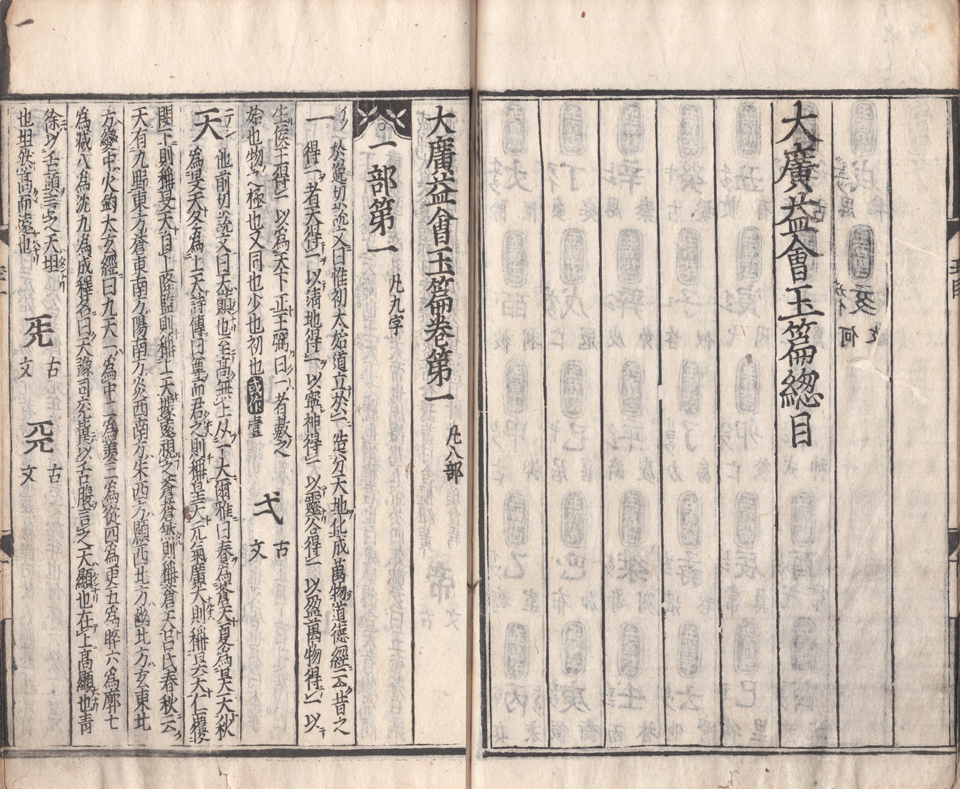 大廣益會玉篇總目
大廣益會玉篇卷第一 凡八部
一部第一 凡九字
一 於逸切說文曰惟初太始道立於一造分天地化成萬物道德經云昔之
得一者天得一以清地得一以寧神得一以靈谷得一以盈萬物得一以
生侯王得一以為天下正王弼曰一者數之
始也物之極也又同也少也初也或作壹 弌 古文
天 他前切說文曰天顚也至高無上从一大爾雅曰春為蒼天夏為昊天秋
為旻天冬為上天詩傳曰尊而君之則稱皇天元氣廣大則稱昊天仁覆
閔下則稱旻天自上降監則稱上天據遠視之蒼蒼然則稱蒼天呂氏春秋云
天有九野東方蒼東南方陽南方炎西南方朱西方顥西北方幽北方玄東北
方變中央鈞太玄經曰九天一為中二為羨三為從四為更五為睟六為廓七
為減八為沈九為成釋名曰天豫司兗冀以舌腹言之天顯也在上高顯也青
徐以舌頭言之天坦
也坦然高而遠也 兂 古文 𠀘 古文